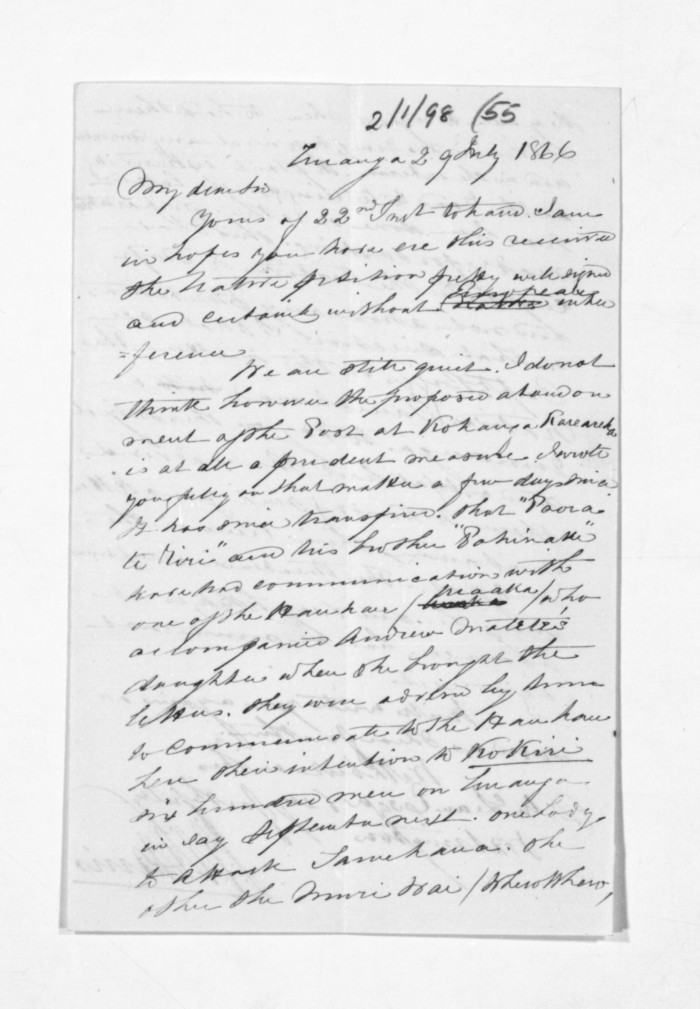 2/1/98 (55
Turanga 29 July 1866
My dear Sir
Yours of 22nd Inst to hand. I am
in hopes you have ere this received
the Native petition pretty well signed
and certainly without European inter
=ference
We are still quiet. I do not
think however the proposed abandon
ment of the Post at Kohanga Karearea
is at all a prudent measure. I wrote
you fully on that matter a few days since
It has since transpired that "Paora
te "Iri" and his brother "Pahinake"
have had communication with
one of the Hauhau / who
accompanied Andrew
daughter when she brought the
letters. They were advised by
to communicate to the Hau hau
here their intention to KoKiri
six hundred men on Turanga
in say September next. one body
to attack Tawehaua. the
other the Muri Wai / Wherowhero,